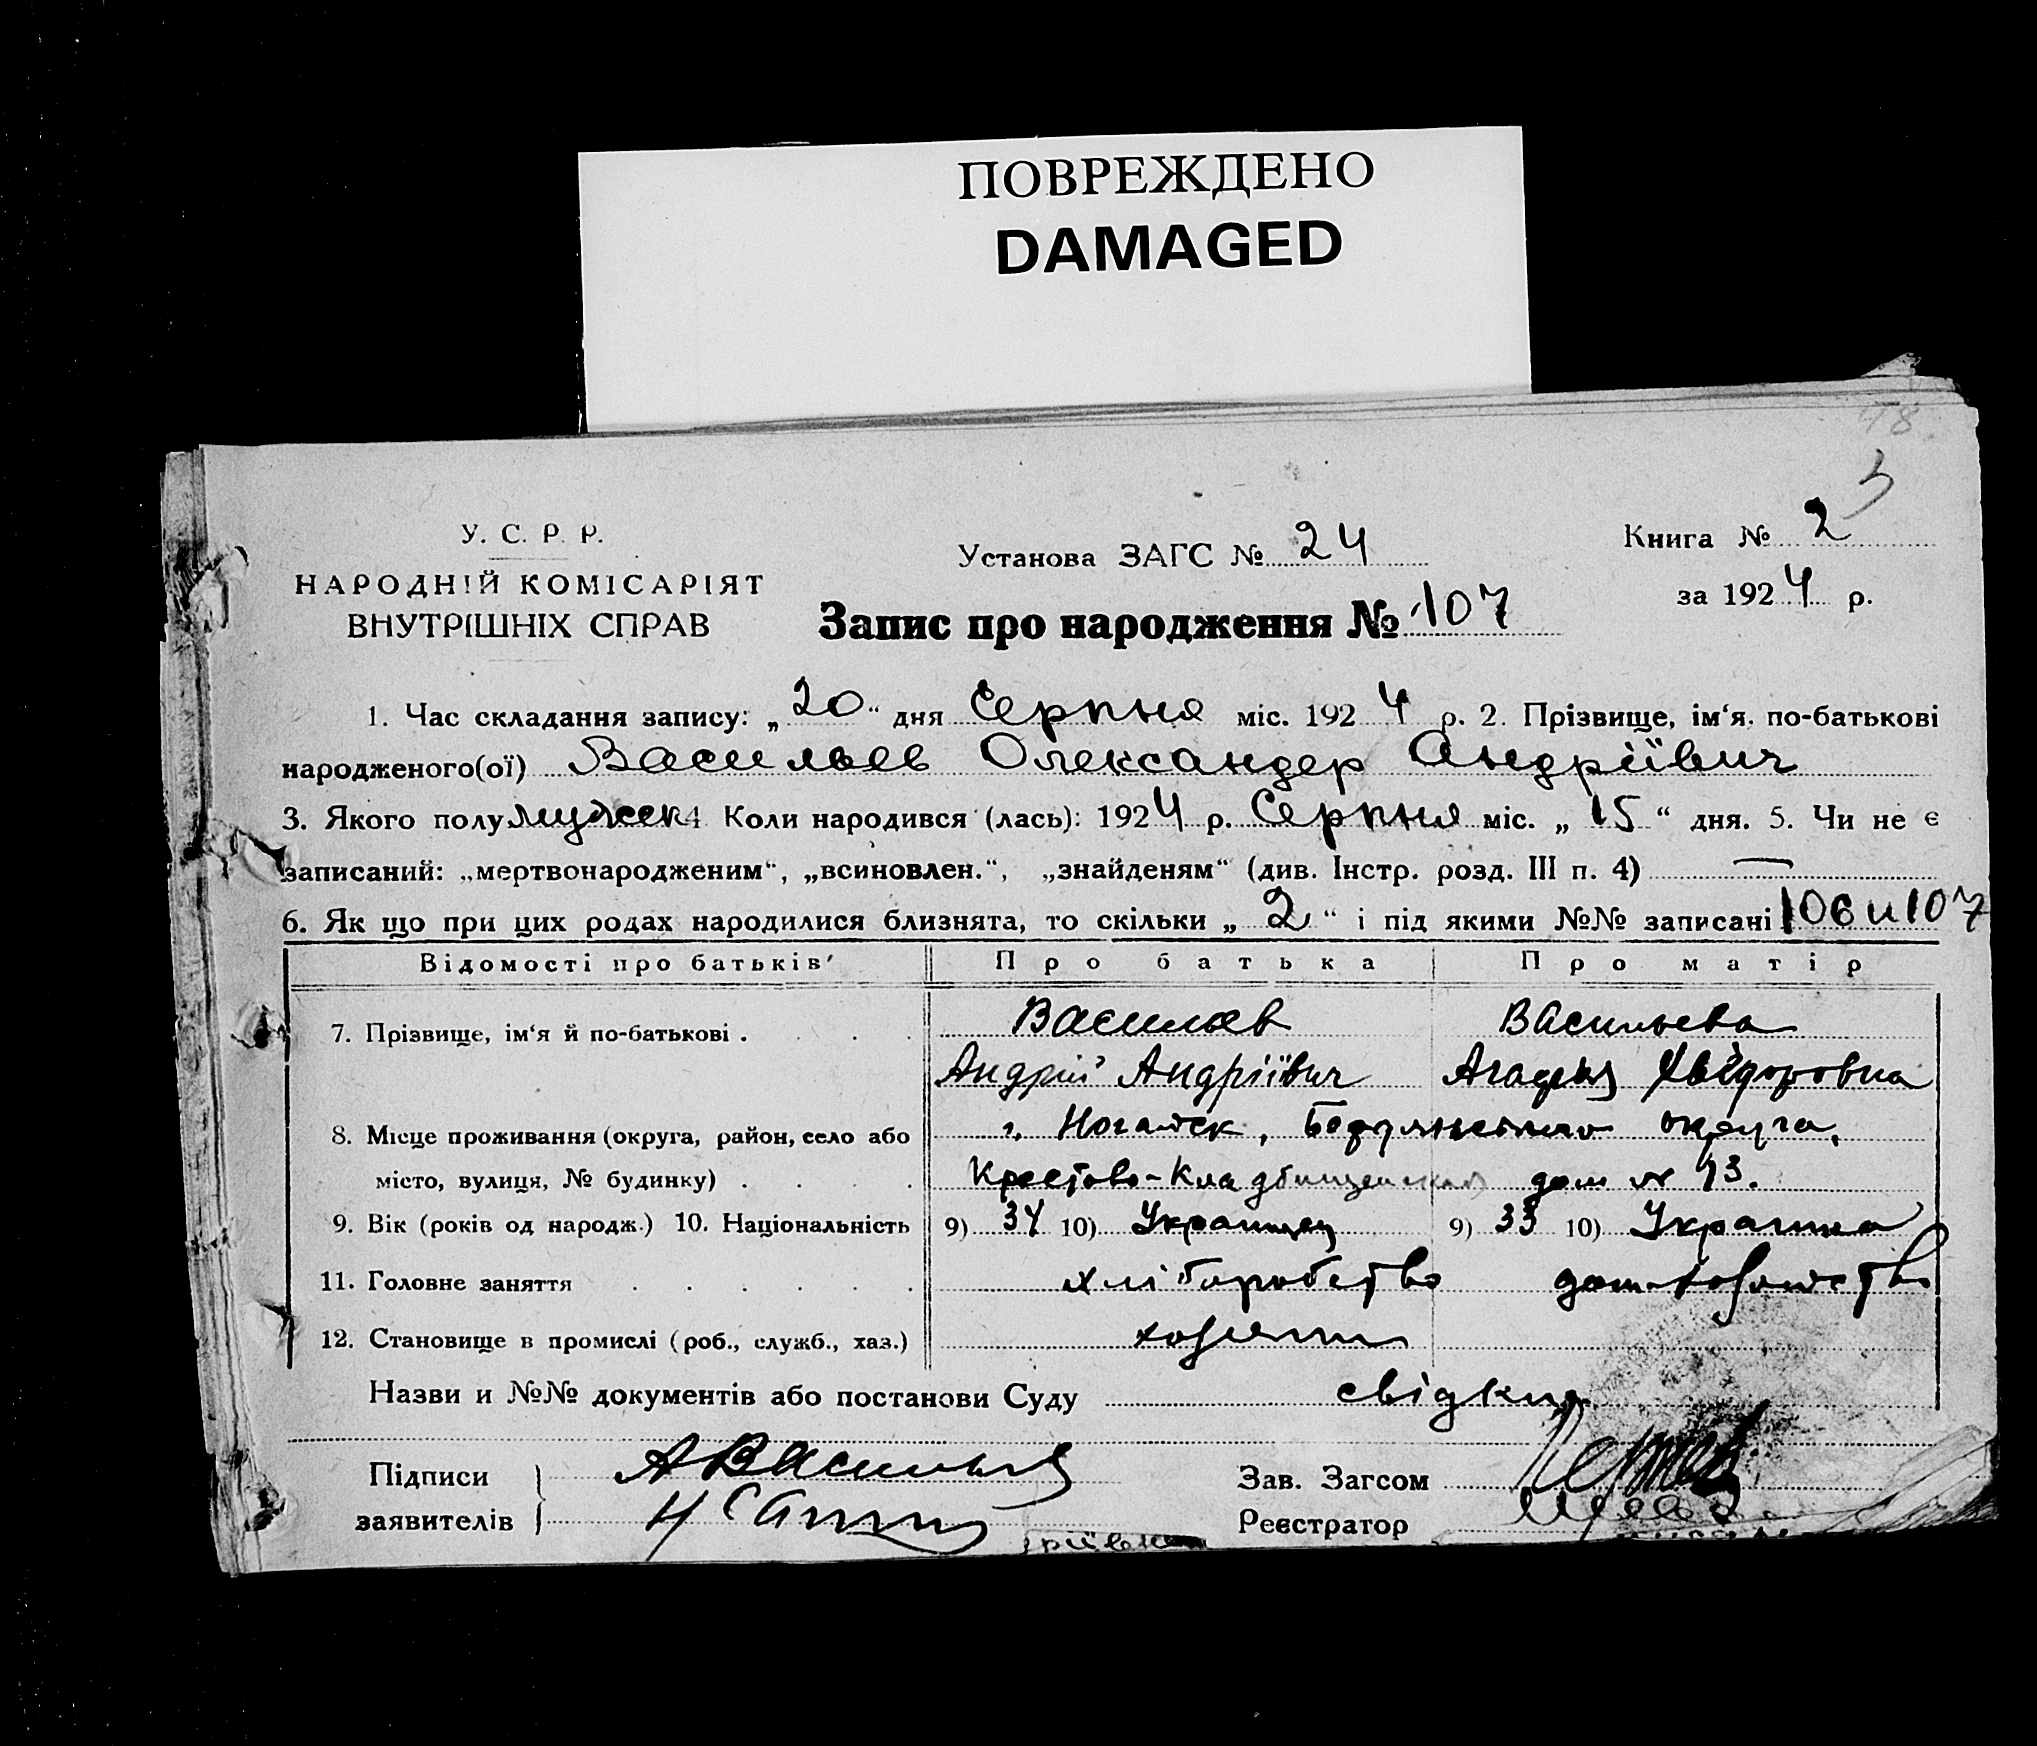 ПОВРЕЖДЕНО
DAMAGED
48
3
У. С. Р. Р.
НАРОДНІЙ КОМІСАРІЯТ
ВНУТРІШНІХ СПРАВ
Установа ЗАГС № 24
Запис про народження № 107
Книга № 2
за 1924 р.
1. Час складання запису: „20“ дня Серпня міс. 1924 р. 2. Прізвище, ім‘я. по-батькові
народженого(ої) Васильев Олександер Андріївич
3. Якого полу мужеск 4 Коли народився (лась): 1924 р. Серпня міс. „15“ дня. 5. Чи не є
записаний: „мертвонародженим“, „всиновлен.“, „знайденям“ (див. Інстр. розд. III п. 4) —
6. Як що при цих родах народилися близнята, то скільки „2“ і під якими №№ записані 106 и 107
Відомості про батьків Про батька Про матір
7. Прізвище, ім‘я й по-батькові . Васильев Васильева
Андрій Андріївич Агафья Хвёдоровна
8. Місце проживання (округа, район, село або г. Ногайск, Бердянського округа,
місто, вулиця, № будинку) Крестово-Кладбищенская дом № 43.
9. Вік (років од народж.) 10. Національність 9) 34 10) Украинец 9) 33 10) Украінка
11. Головне заняття хліборобство дом-хозяйство
12. Становище в промислі (роб., служб., хаз.) хозяин
Назви и №№ документів або постанови Суду свідки
Підписи А Васильев Зав. Загсом
заявителів Реєстратор